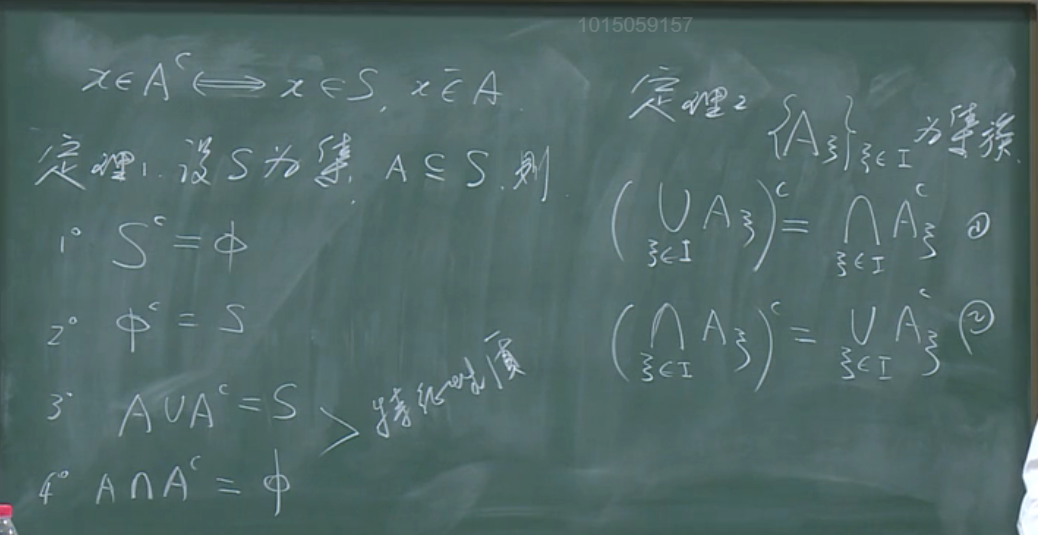 1015059157
x∈A^c ⟺ x∈S, x∈̄A.
定理1. 设S为集, A⊆S, 则
1° S^c = ϕ
2° ϕ^c = S
3° A∪A^c = S
4° A∩A^c = ϕ
定理2 {A_ξ}_{ξ∈I} 为集族.
(∪_{ξ∈I} A_ξ)^c = ∩_{ξ∈I} A_ξ^c ①
(∩_{ξ∈I} A_ξ)^c = ∪_{ξ∈I} A_ξ^c ②